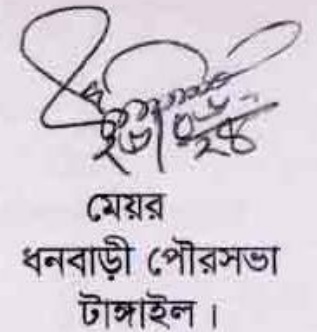 মেয়র
ধনবাড়ী পৌরসভা
টাঙ্গাইল।